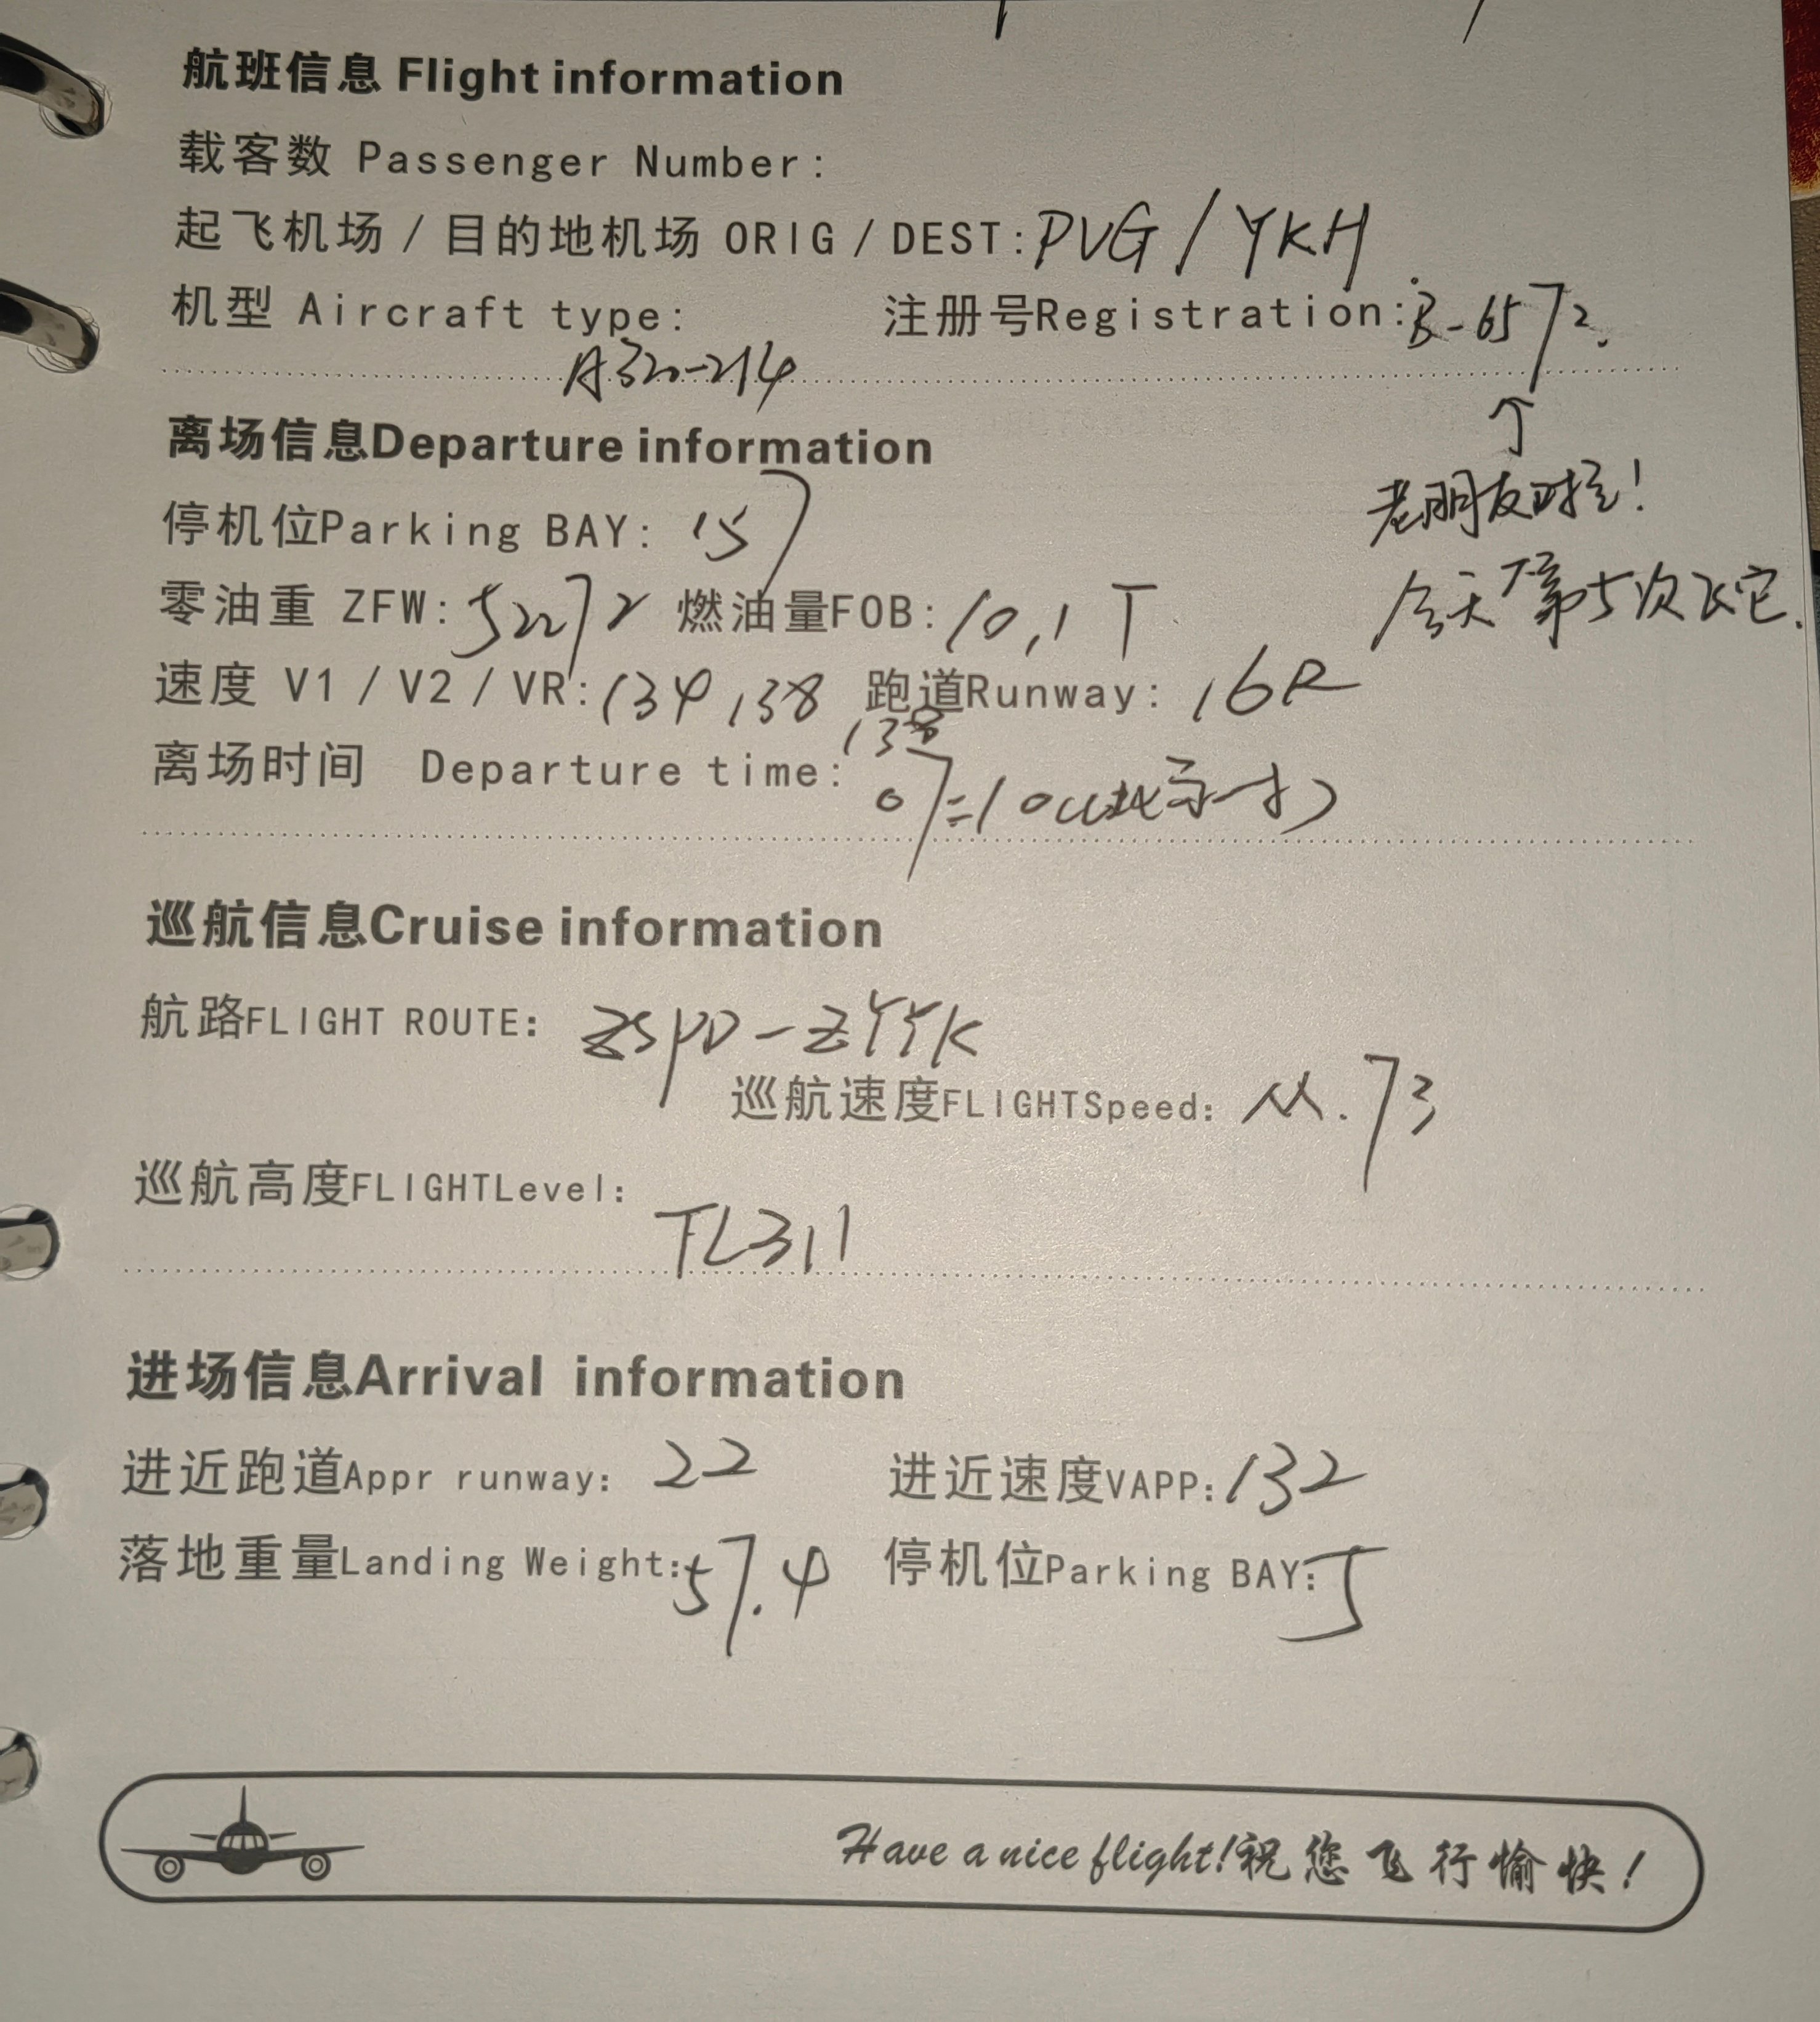 航班信息 Flight information
载客数 Passenger Number:
起飞机场 / 目的地机场 ORIG / DEST: PVG / YKH
机型 Aircraft type: 注册号Registration: B-6572.
A320-214
↑
离场信息Departure information
老朋友
停机位Parking BAY: 157
今天 第5次飞它.
零油重 ZFW: 5227 燃油量FOB: 10.1 T
速度 V1 / V2 / VR: 134 138 跑道Runway: 16R
138
离场时间 Departure time: 07:10 (北京时)
巡航信息Cruise information
航路FLIGHT ROUTE: ZSPD-ZYYK
巡航速度FLIGHTSpeed: M.73
巡航高度FLIGHTLevel:
FL311
进场信息Arrival information
进近跑道Appr runway: 22 进近速度VAPP: 132
落地重量Landing Weight: 57.4 停机位Parking BAY: 5
Have a nice flight!祝您飞行愉快!